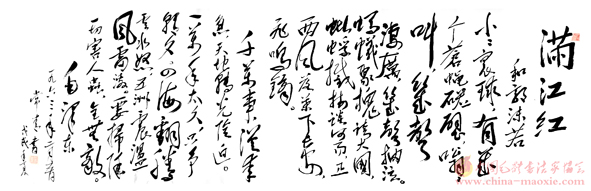 满江红
和郭沫若
小小寰球，有几
个苍蝇碰壁。嗡嗡
叫，几声
凄厉，几声抽泣。
蚂蚁缘槐夸大国，
蚍蜉撼树谈何易。正
西风落叶下长安，
飞鸣镝。
千万事，从来
急；天地转，光阴迫。
一万年太久，只争
朝夕。四海翻腾
云水怒，五洲震荡
风雷激。要扫除
一切害人虫，全无敌。
毛泽东
一九六三年
www.china-maoxie.com